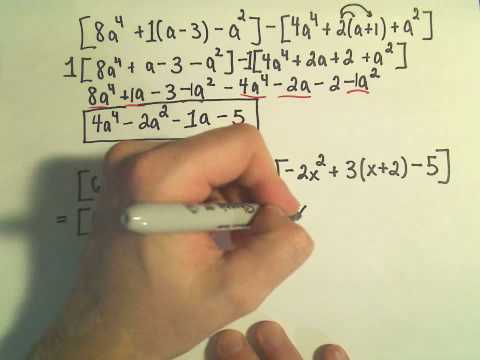 [8a⁴ + 1(a-3) - a²] - [4a⁴ + 2(a+1) + a²]
1[8a⁴ + a - 3 - a²] - 1[4a⁴ + 2a + 2 + a²]
8a⁴ + 1a - 3 - 1a² - 4a⁴ - 2a - 2 - 1a²
4a⁴ - 2a² - 1a - 5
[ [-2x² + 3(x+2) - 5]
= [